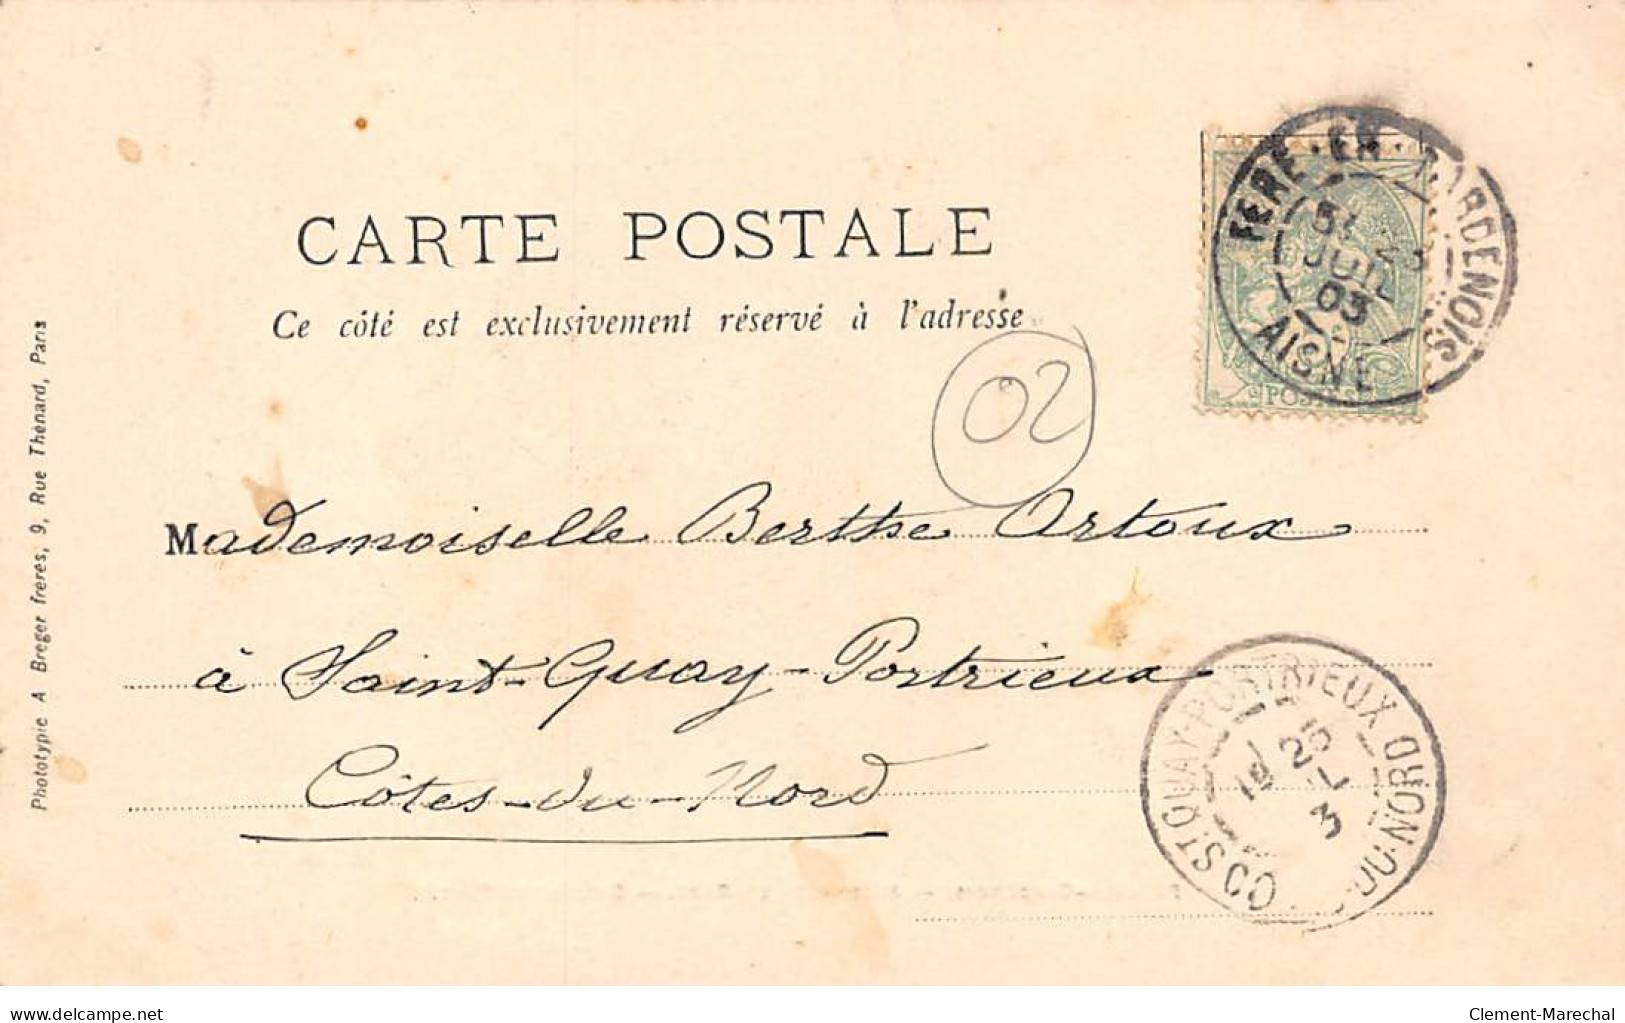 CARTE POSTALE
Ce côté est exclusivement réservé à l'adresse
FERE-EN-TARDENOIS
JUIL
03
AISNE
POSTES
02
Mademoiselle Berthe Ortoux
à Saint-Quay-Portrieux
Côtes-du-Nord
ST QUAY-PORTRIEUX
DU-NORD
Phototypie A Breger frères, 9, Rue Thénard, Paris
www.delcampe.net
Clement-Marechal